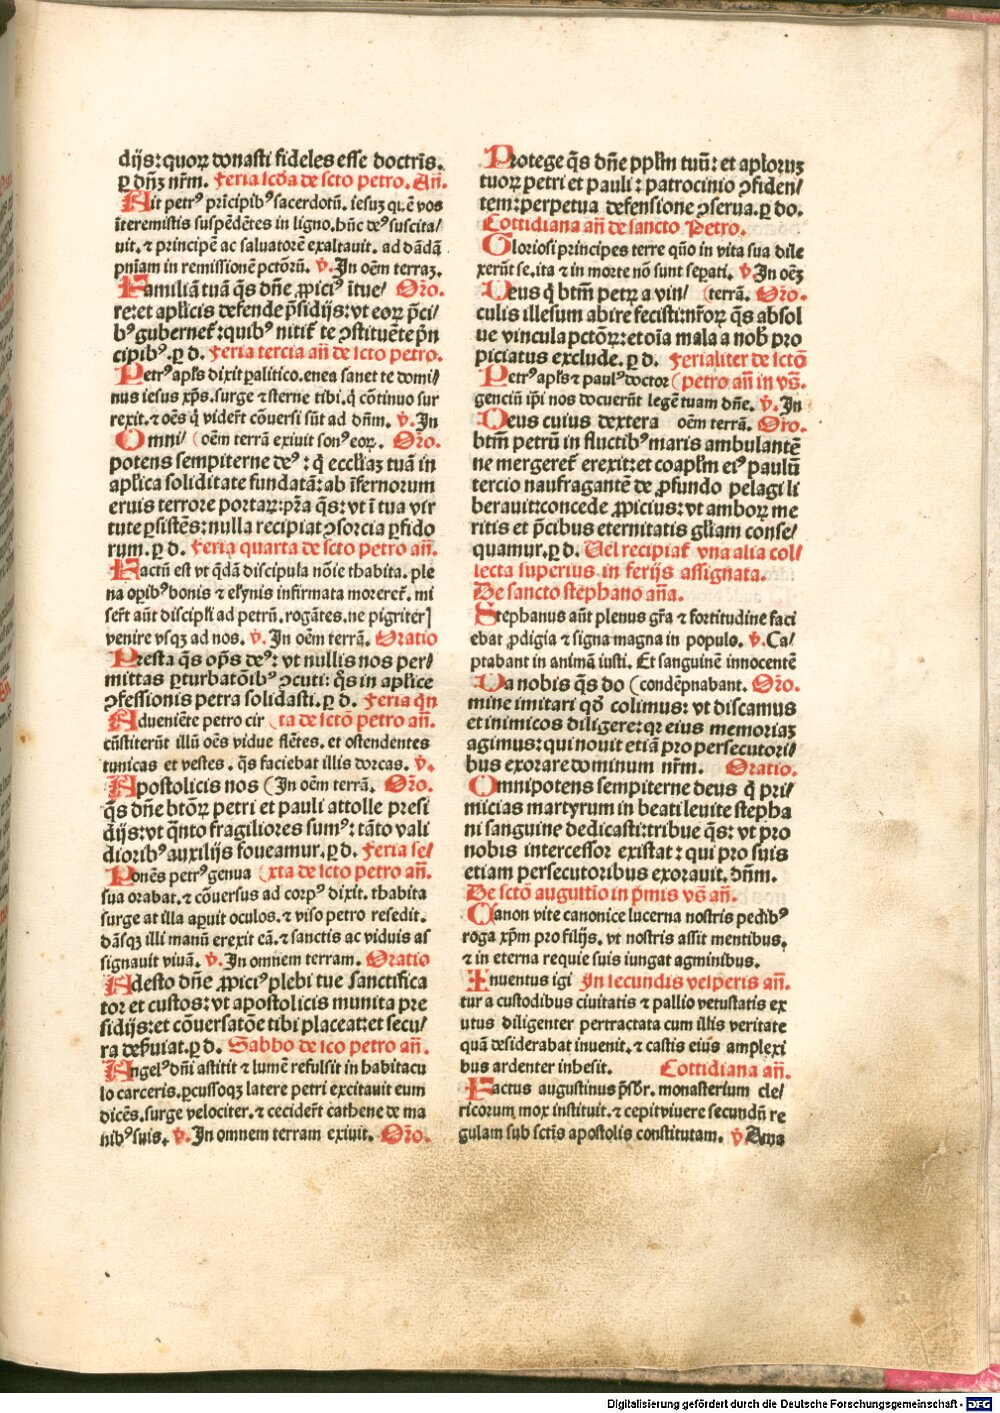 dijs: quoꝝ donasti fideles esse doctrīs.
ꝑ dn̄ꝫ nr̄m. Feria scd̄a de scto petro. An̄.
Ait petrꝰ prīcipibꝰ sacerdotū. iesuꝫ quē vos
īteremistis suspēdētes in ligno. hūc deꝰ suscita/
uit. ⁊ principē ac saluatorē exaltauit. ad dādā
pn̄iam in remissionē pctōrū. ꝟ. In oēm terraꝫ.
Familiā tuā q̄s dn̄e ꝓpiciꝰ ītue/ Oro.
re: et apl̄icis defende p̄sidijs: vt eoꝝ p̄ci/
bꝰ gubernet̄: quibꝰ nitit̄ te ꝯstituēte p̄n
cipibꝰ. ꝑ d. Feria tercia an̄ de scto petro.
Petrꝰ apl̄s dixit palitico. enea sanet te domi/
nus iesus xp̄s. surge ⁊ sterne tibi. q̇ cōtinuo sur
rexit. ⁊ oēs q̇ vidert̄ cōuersi sūt ad dn̄m. ꝟ. In
Omni/ (oēm terrā exiuit sonꝰ eoꝝ. Oro.
potens sempiterne deꝰ: q̇ eccl̄iaꝫ tuā in
apl̄ica soliditate fundatā: ab īfernorum
eruis terrore portaꝝ: pr̄a q̄s: vt ī tua vir
tute ꝑsistēs: nulla recipiat ꝯsorcia ꝑfido
rum. ꝑ d. Feria quarta de scto petro an̄.
Factū est vt q̄dā discipula nōie thabita. ple
na oꝑibꝰ bonis ⁊ elȳnis infirmata moreret̄. mi
sert̄ aūt discipl̄i ad petrū. rogātes. ne pigriter]
venire vsqꝫ ad nos. ꝟ. In oēm terrā. Oratio
Presta q̄s op̄s deꝰ: vt nullis nos per/
mittas ꝑturbatōibꝰ ꝯcuti: q̄s in apl̄ice
ꝯfessionis petra solidasti. ꝑ d. Feria q̄n
Adueniēte petro cir (ta de sctō petro an̄.
cūstiterūt illū oēs vidue flētes. et ostendentes
tunicas et vestes. q̄s faciebat illis dorcas. ꝟ.
Apostolicis nos (In oēm terrā. Oro.
q̄s dn̄e btōꝝ petri et pauli attolle presi
dijs: vt q̄nto fragiliores sumꝰ: tāto vali
dioribꝰ auxilijs foueamur. ꝑ d. Feria se/
Ponēs petrꝰ genua (xta de scto petro an̄.
sua orabat. ⁊ cōuersus ad corpꝰ dixit. thabita
surge at illa aꝑuit oculos. ⁊ viso petro resedit.
dāsqꝫ illi manū erexit eā. ⁊ sanctis ac viduis as
signauit viuā. ꝟ. In omnem terram. Oratio
Adesto dn̄e ꝓpiciꝰ plebi tue sanctifica
tor et custos: vt apostolicis munita pre
sidijs: et cōuersatōe tibi placeat: et secu/
ra des̄uiat. ꝑ d. Sabbo de sco petro an̄.
Angelꝰ dn̄i astitit ⁊ lumē refulsit in habitacu
lo carceris. ꝑcussoqꝫ latere petri excitauit eum
dicēs. surge velociter. ⁊ cecidert̄ cathene de ma
nibꝰ suis. ꝟ. In omnem terram exiuit. Oro.
Protege q̄s dn̄e ppl̄m tuū: et apl̄oruꝫ
tuoꝝ petri et pauli: patrocinio ꝯfiden/
tem: perpetua defensione ꝯserua. ꝑ do.
Cottidiana an̄ de sancto Petro.
Gloriosi principes terre quō in vita sua dile
xerūt se. ita ⁊ in morte nō sunt seꝑati. ꝟ In oēꝫ
Deus q̇ btm̄ petꝝ a vin/ (terrā. Oro.
culis illesum abire fecisti: nr̄oꝝ q̄s absol
ue vincula pctōꝝ: et oīa mala a nob̄ pro
piciatus exclude. ꝑ d. Ferialiter de sctō
Petrꝰ apl̄s ⁊ paulꝰ doctor (petro an̄ in vs̄.
genciū ip̄i nos docuerūt legē tuam dn̄e. ꝟ. In
Deus cuius dextera oēm terrā. Oro.
btm̄ petrū in fluctibꝰ maris ambulantē
ne mergeret̄ erexit: et coapl̄m eiꝰ paulū
tercio naufragantē de ꝓfundo pelagi li
berauit: concede ꝓpicius: vt amboꝝ me
ritis et p̄cibus eternitatis gl̄iam conse/
quamur. ꝑ d. Vel recipiat̄ vna alia col/
lecta superius in ferijs assignata.
De sancto stephano an̄a.
Stephanus aūt plenus gr̄a ⁊ fortitudine faci
ebat ꝓdigia ⁊ signa magna in populo. ꝟ. Ca/
ptabant in animā iusti. Et sanguinē innocentē
Da nobis q̄s do (condēpnabant. Oro.
mine imitari qd̄ colimus: vt discamus
et inimicos diligere: qꝛ eius memoriaꝫ
agimus: qui nouit etiā pro persecutori/
bus exorare dominum nr̄m. Oratio.
Omnipotens sempiterne deus q̇ pri/
micias martyrum in beati leuite stepha
ni sanguine dedicasti: tribue q̄s: vt pro
nobis intercessor existat: qui pro suis
etiam persecutoribus exorauit. dn̄m.
De sctō augustīo in p̄mis vs̄ an̄.
Canon vite canonice lucerna nostris pedibꝰ
roga xp̄m pro filijs. vt nostris assit mentibus.
⁊ in eterna requie suis iungat agminibus.
Inuentus igi In secundis vesperis an̄.
tur a custodibus ciuitatis ⁊ pallio vetustatis ex
utus diligenter pertractata cum illis veritate
quā desiderabat inuenit. ⁊ castis eius amplexi
bus ardenter inhesit. Cottidiana an̄.
Factus augustinus p̄sbr̄. monasterium cle/
ricorum mox instituit. ⁊ cepit viuere secundū re
gulam sub sctīs apostolis constitutam. ꝟ Ama
Digitalisierung gefördert durch die Deutsche Forschungsgemeinschaft - DFG